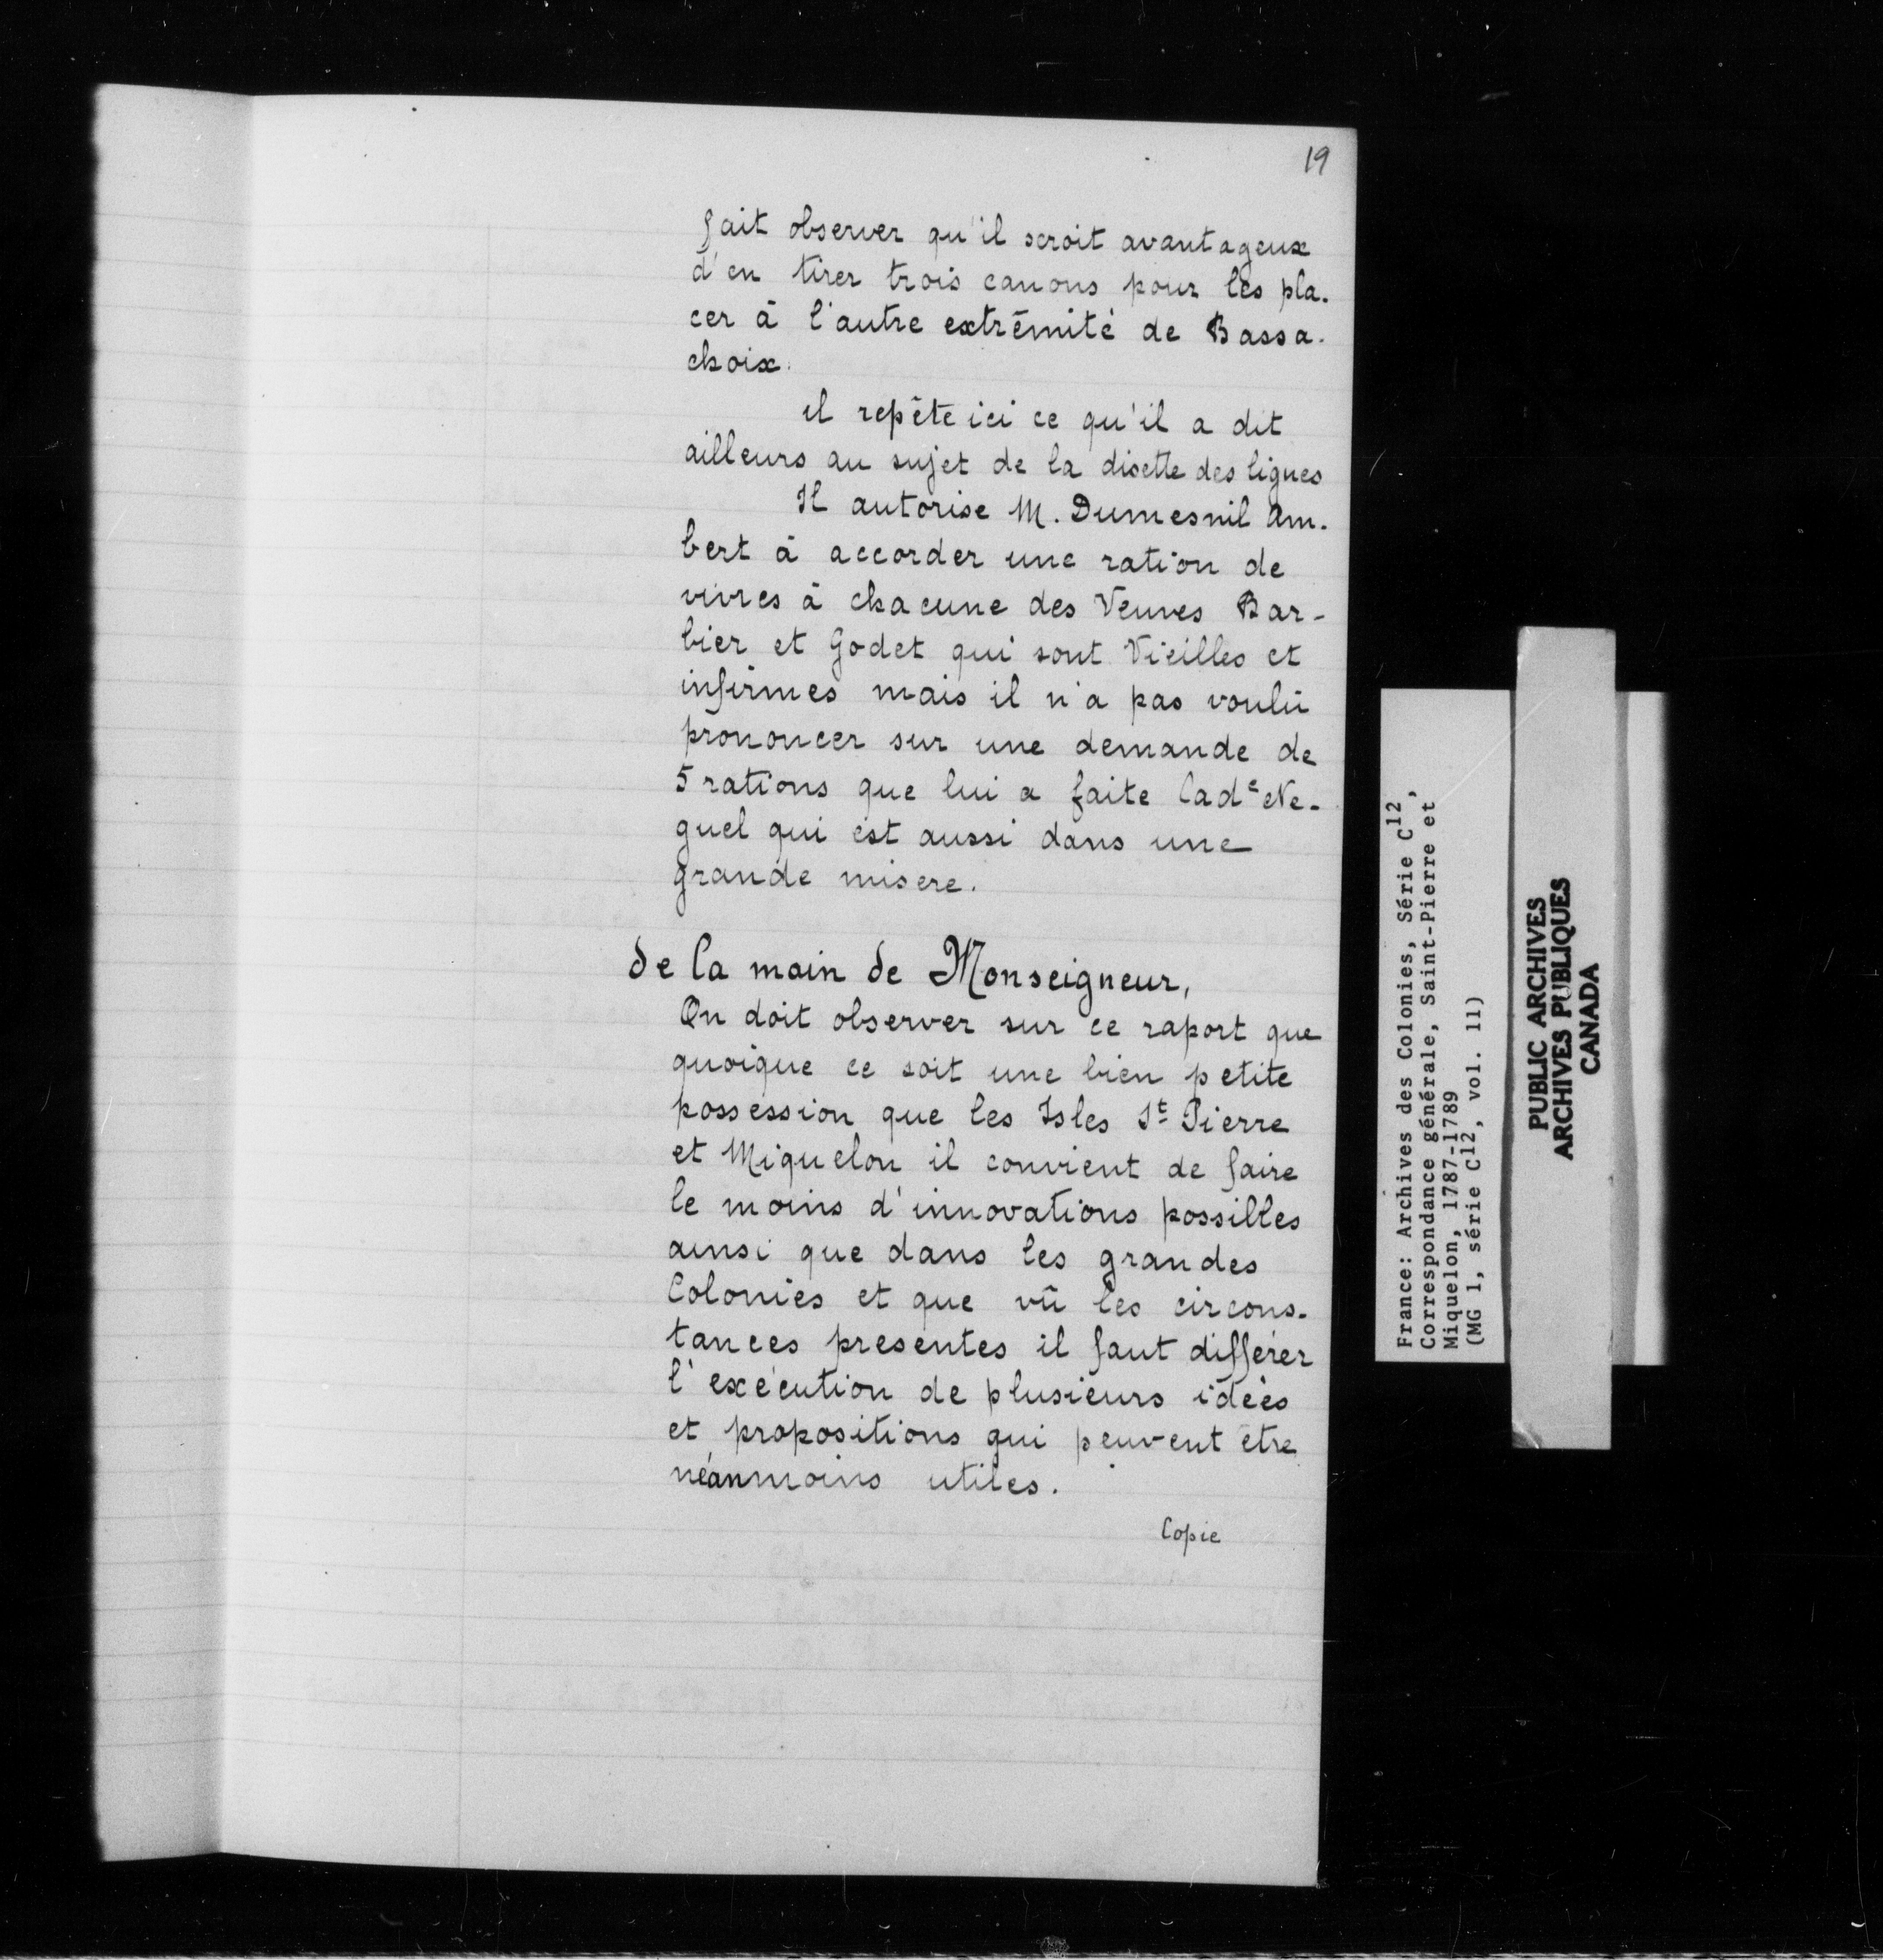 19
fait observer qu'il seroit avantageux
d'en tirer trois canons pour les pla-
cer à l'autre extrémité de Bassa-
choix.
il repète ici ce qu'il a dit
ailleurs au sujet de la disette des lignes
Il autorise M. Dumesnil Am-
bert à accorder une ration de
vivres à chacune des Veuves Bar-
bier et Godet qui sont Vieilles et
infirmes mais il n'a pas voulû
prononcer sur une demande de
5 rations que lui a faite lad^e Ne-
guel qui est aussi dans une
grande misere.
de la main de Monseigneur,
On doit observer sur ce raport que
quoique ce soit une bien petite
possession que les Isles S^t Pierre
et Miquelon il convient de faire
le moins d'innovations possibles
ainsi que dans les grandes
Colonies et que vû les circons-
tances presentes il faut différer
l'exécution de plusieurs idées
et propositions qui peuvent être
néanmoins utiles.
Copie
France: Archives des Colonies, Série C12,
Correspondance générale, Saint-Pierre et,
Miquelon, 1787-1789
(MG 1, série C12, vol. 11)
PUBLIC ARCHIVES
ARCHIVES PUBLIQUES
CANADA